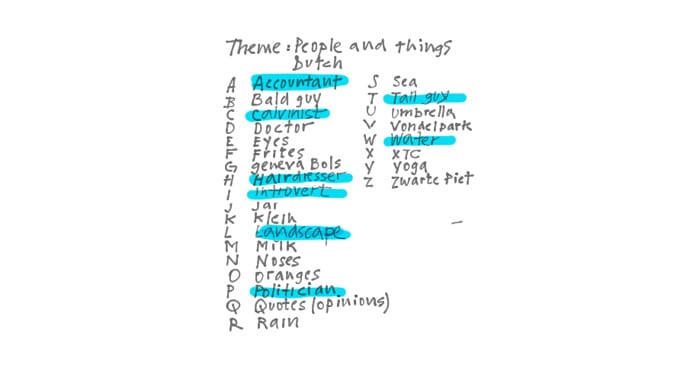 Theme: People and things
Dutch
A Accountant
B Bald guy
C Calvinist
D Doctor
E Eyes
F Frites
G geneva Bols
H Hairdresser
I introvert
J Jar
K Klein
L Landscape
M Milk
N Noses
O oranges
P Politician
Q Quotes (opinions)
R Rain
S Sea
T Tall guy
U Umbrella
V Vondelpark
W Water
X XTC
Y Yoga
Z Zwarte Piet